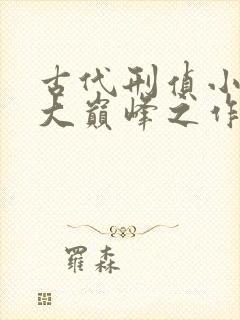 古代刑偵小
大巔峰之作
羅森